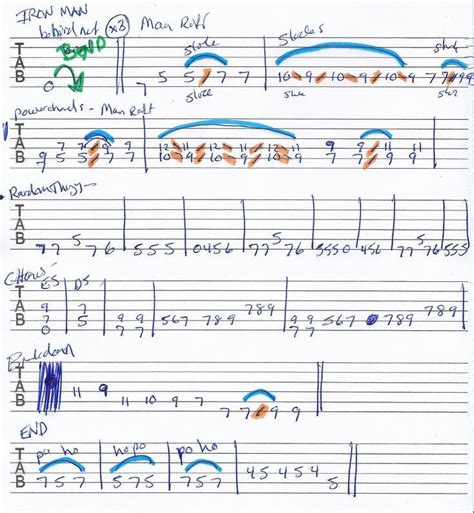 IRON MAN
behind nut x3 Man Riff
BEND slide Slides slide
T A B 0 7 5 5 7 7 10 9 10 9 10 9 7 7 9 9
slide slide
Powerchords - Man Riff
T A B
9 7 7 9 9 12 11 12 11 12 11 9 9 11 11
7 5 5 7 7 10 9 10 9 10 9 7 7 9 9
Random Things
T A B 7 7 5 7 6 5 5 5 0 4 5 6 7 7 5 7 6 5 5 5 0 4 5 6 7 7 5 7 6 5 5 5
Chorus
E5 D5
T A B
9 7 7 8 9 7 8 9
7 5 9 9 5 6 7 7 8 9 9 9 5 6 7 7 8 9
0 7 7 7 7
Breakdown
T A B 11 9 11 10 9 7 7 7 9 9
END
po ho ho po po ho
T A B 7 5 7 5 7 5 7 5 7 4 5 4 5 4 5